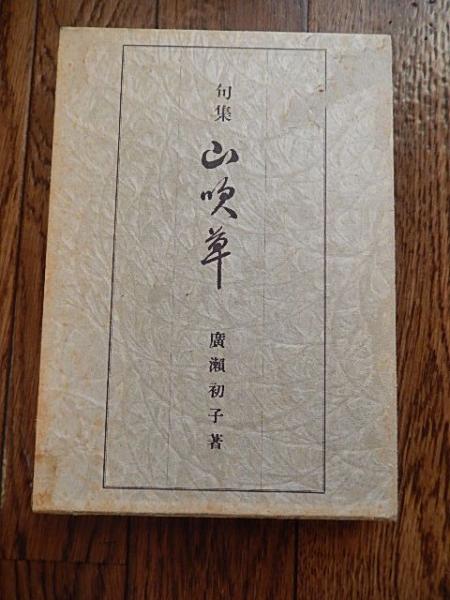 句集
山吹草
廣瀨初子著